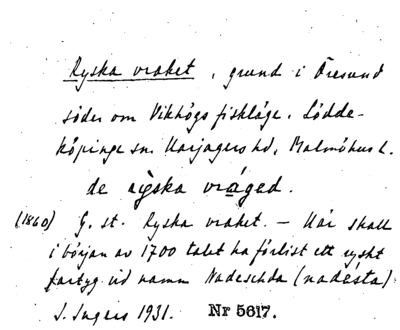 Ryska vraket, grund i Öresund
söder om Vikhögs fiskläge. Lödde-
köpinge sn. Harjagers hd, Malmöhus l.
de ryska vråged.
(1860) G. st. Ryska vraket. — Här skall
i början av 1700 talet ha förlist ett ryskt
fartyg vid namn Nadeschda (nadésta)
I. Ingers 1931. Nr 5617.